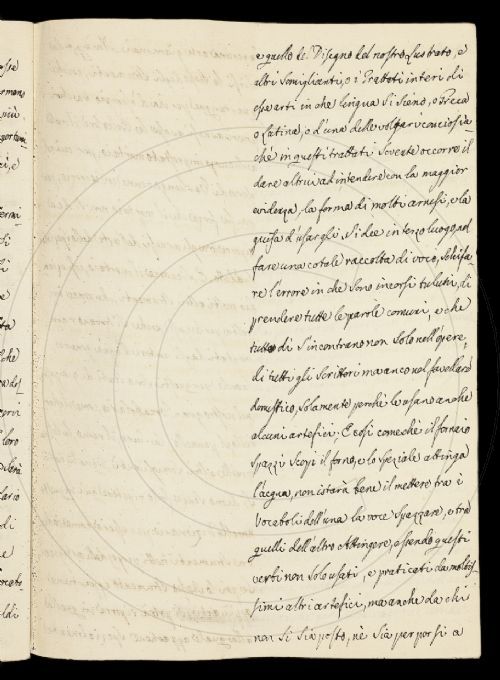 e quello del Disegno del nostro Lustrato, e
altri somiglianti, o i Trattati interi di
esse arti in che lingua si sieno, o Greca
o Latina, o d'una delle volgari conciosia-
chè in questi trattati sovente occorre il
dare altrui ad intendere con la maggior
evidenza, la forma di molti arnesi, e la
guisa d'usargli, si dee in terzo luogo nel
fare una cotale raccolta di voci, schifa-
re l'errore in che sono incorsi taluni, di
prendere tutte le parole comuni, e che
tutto dì s'incontrano non solo nell'opere,
di tutti gli scrittori ma anco nel favellare
domestico, solamente perchè le usano anche
alcuni artefici. E così comechè il fornaio
spazzi scopi il forno, e lo speziale attinga
l'acqua, non istarà bene il mettere tra i
Vocaboli dell'una la voce Spazzare, e tra
quelli dell'altro Attingere, essendo questi
verbi non solo usati, e praticati da moltis-
simi altri artefici, ma anche da chi
non si sia posto, nè sia per porsi a